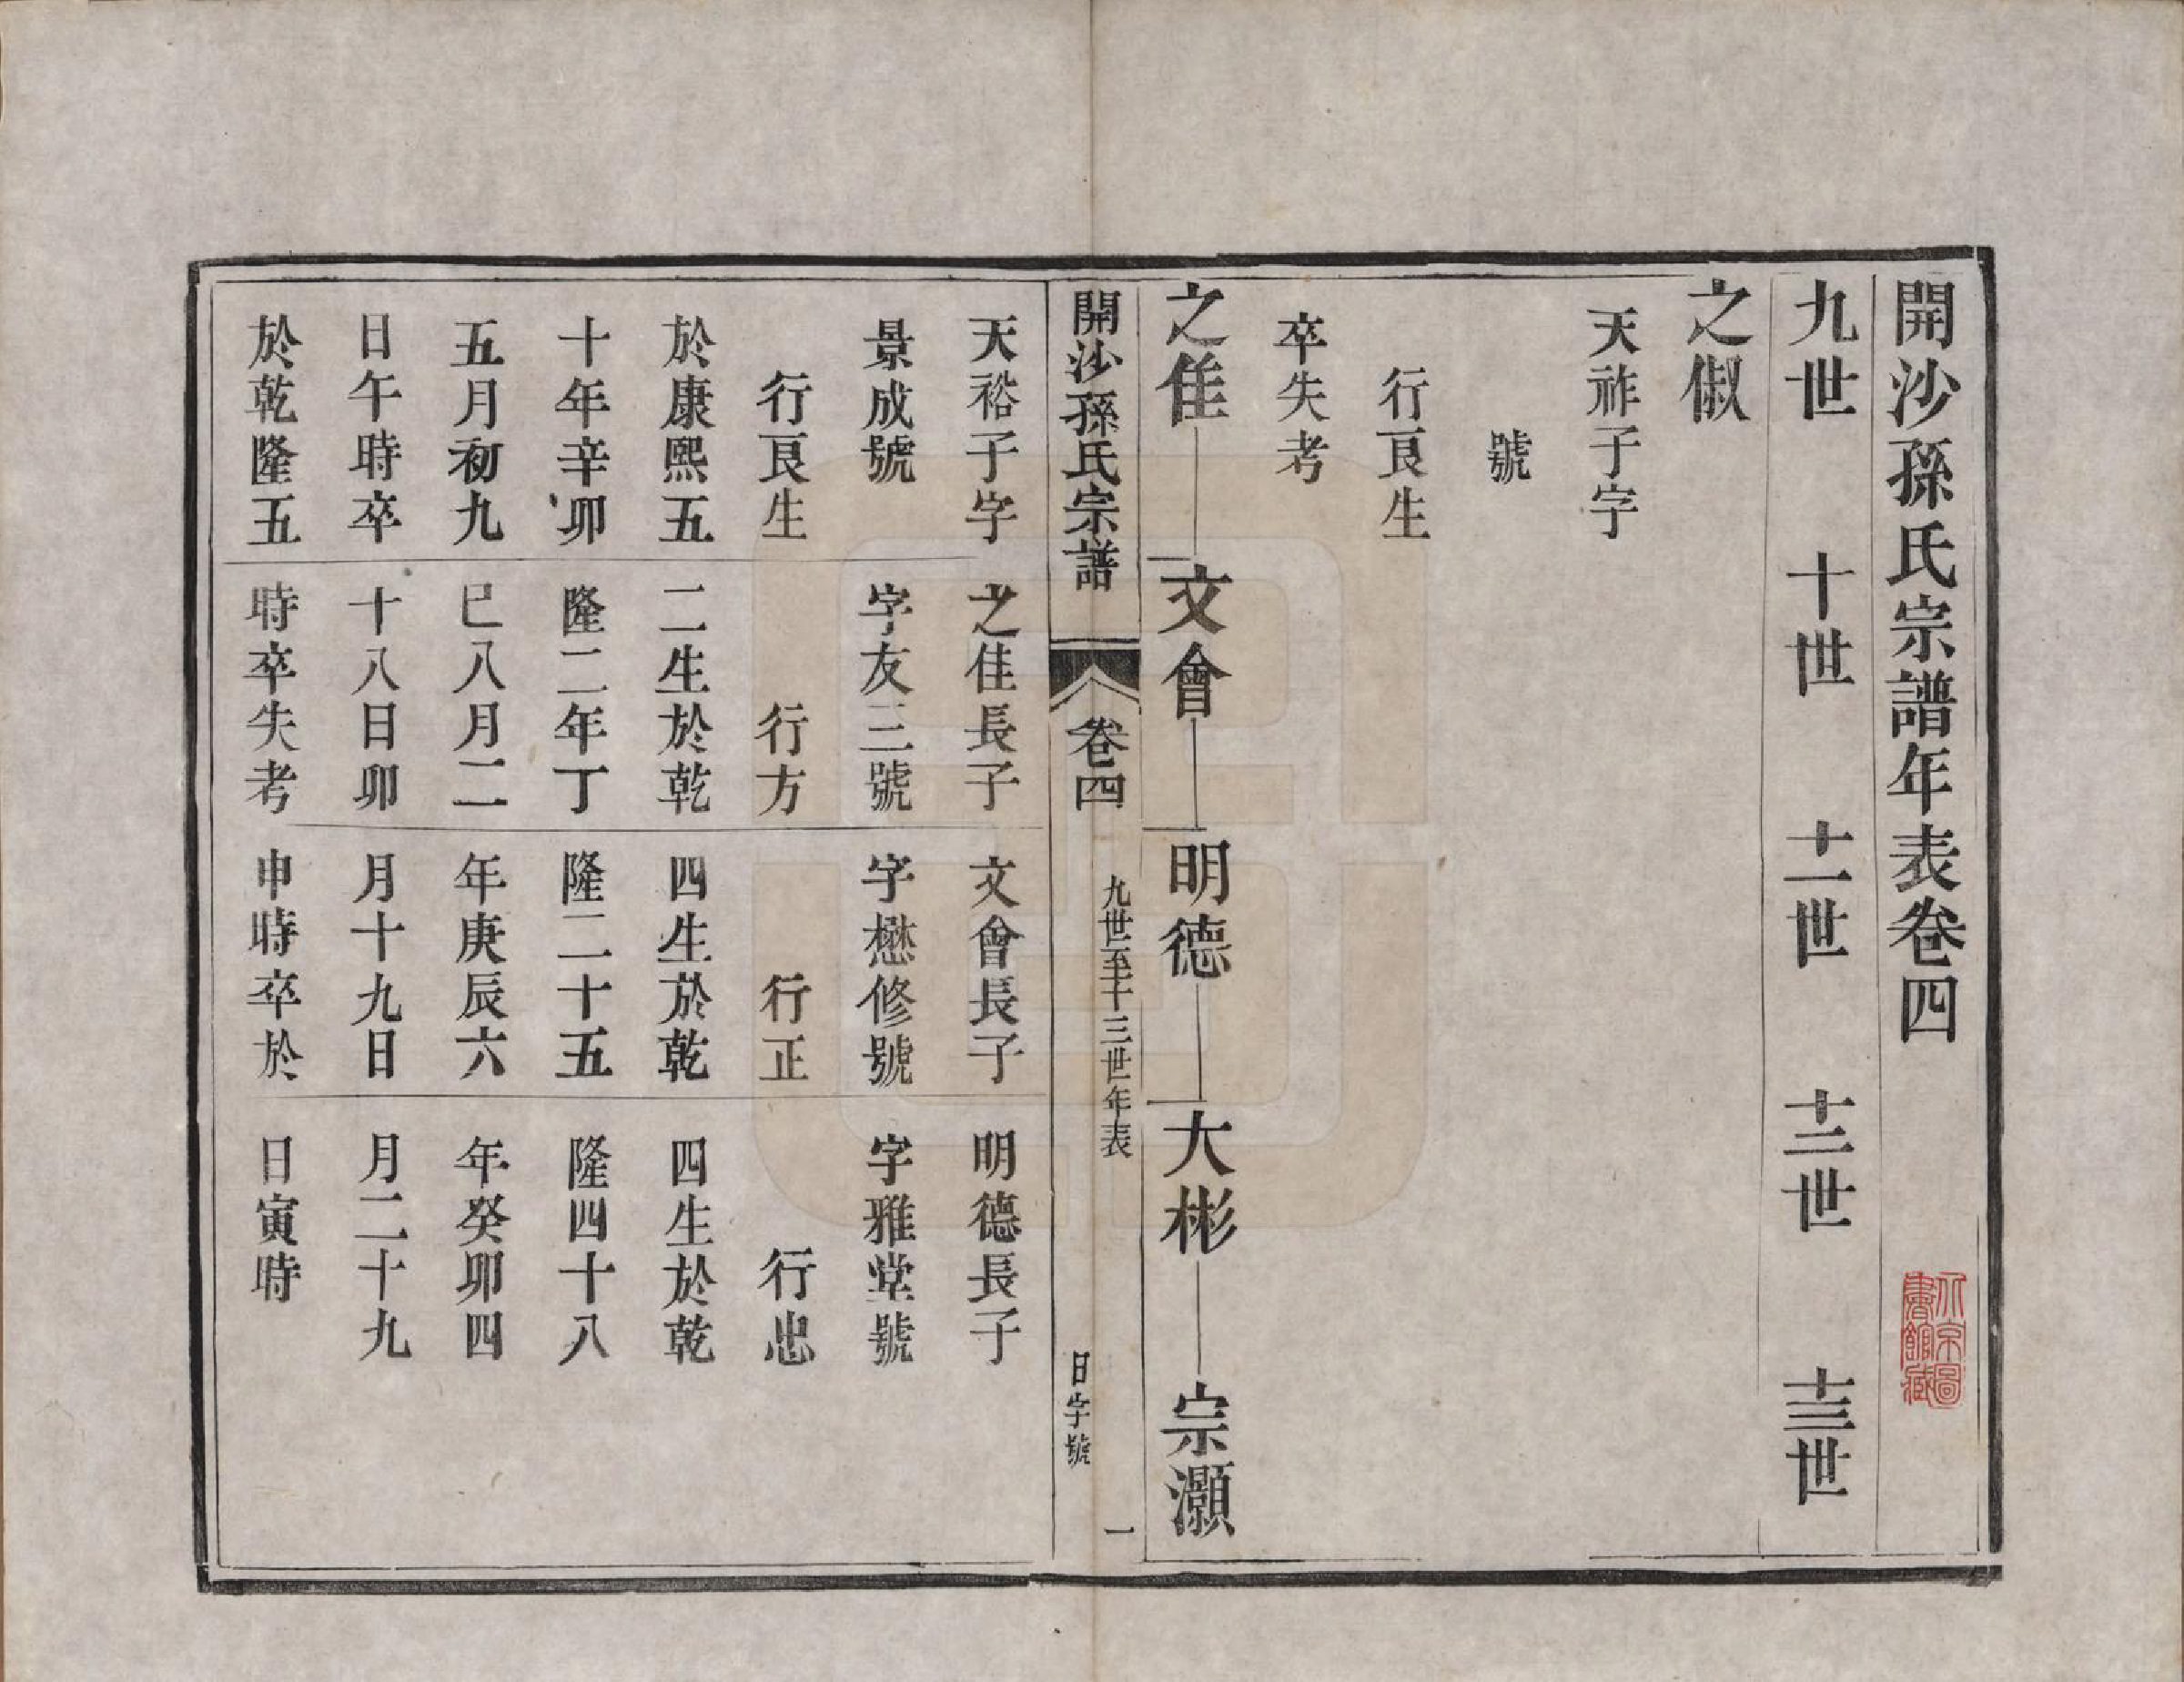 開沙孫氏宗譜年表卷四
九世 十世 十一世 十二世 十三世
之俶
天祚子字
號
行良生
卒失考
之佳 文會 明德 大彬 宗灝
開沙孫氏宗譜 卷四 九世至十三世年表 日字號 一
天裕子字
景成號
行良生
於康熙五
十年辛卯
五月初九
日午時卒
於乾隆五
之佳長子
字友三號
行方
二生於乾
隆二年丁
巳八月二
十八日卯
時卒失考
文會長子
字懋修號
行正
四生於乾
隆二十五
年庚辰六
月十九日
申時卒於
明德長子
字雅堂號
行忠
四生於乾
隆四十八
年癸卯四
月二十九
日寅時
北京圖
書館藏